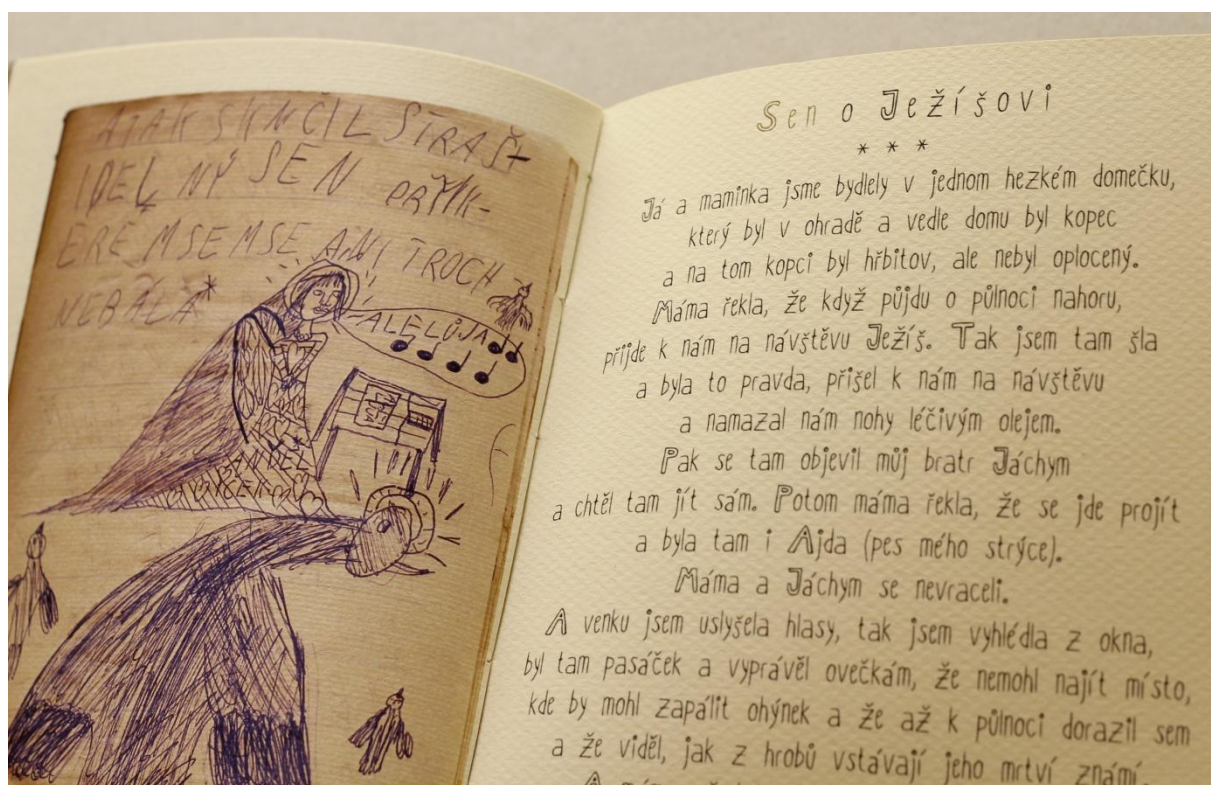 ATAK SKNČIL STRAŠ-
IDEL NÝ SEN PŘIK-
EREMSEMSE ANI TROCH
NEBÁLA*
ALELŮJA
Sen o Ježíšovi
* * *
Já a maminka jsme bydlely v jednom hezkém domečku,
který byl v ohradě a vedle domu byl kopec
a na tom kopci byl hřbitov, ale nebyl oplocený.
Máma řekla, že když půjdu o půlnoci nahoru,
přijde k nám na návštěvu Ježíš. Tak jsem tam šla
a byla to pravda, přišel k nám na návštěvu
a namazal nám nohy léčivým olejem.
Pak se tam objevil můj bratr Jáchym
a chtěl tam jít sám. Potom máma řekla, že se jde projít
a byla tam i Ajda (pes mého strýce).
Máma a Jáchym se nevraceli.
A venku jsem uslyšela hlasy, tak jsem vyhlédla z okna,
byl tam pasáček a vyprávěl ovečkám, že nemohl najít místo,
kde by mohl zapálit ohýnek a že až k půlnoci dorazil sem
a že viděl, jak z hrobů vstávají jeho mrtví známí.